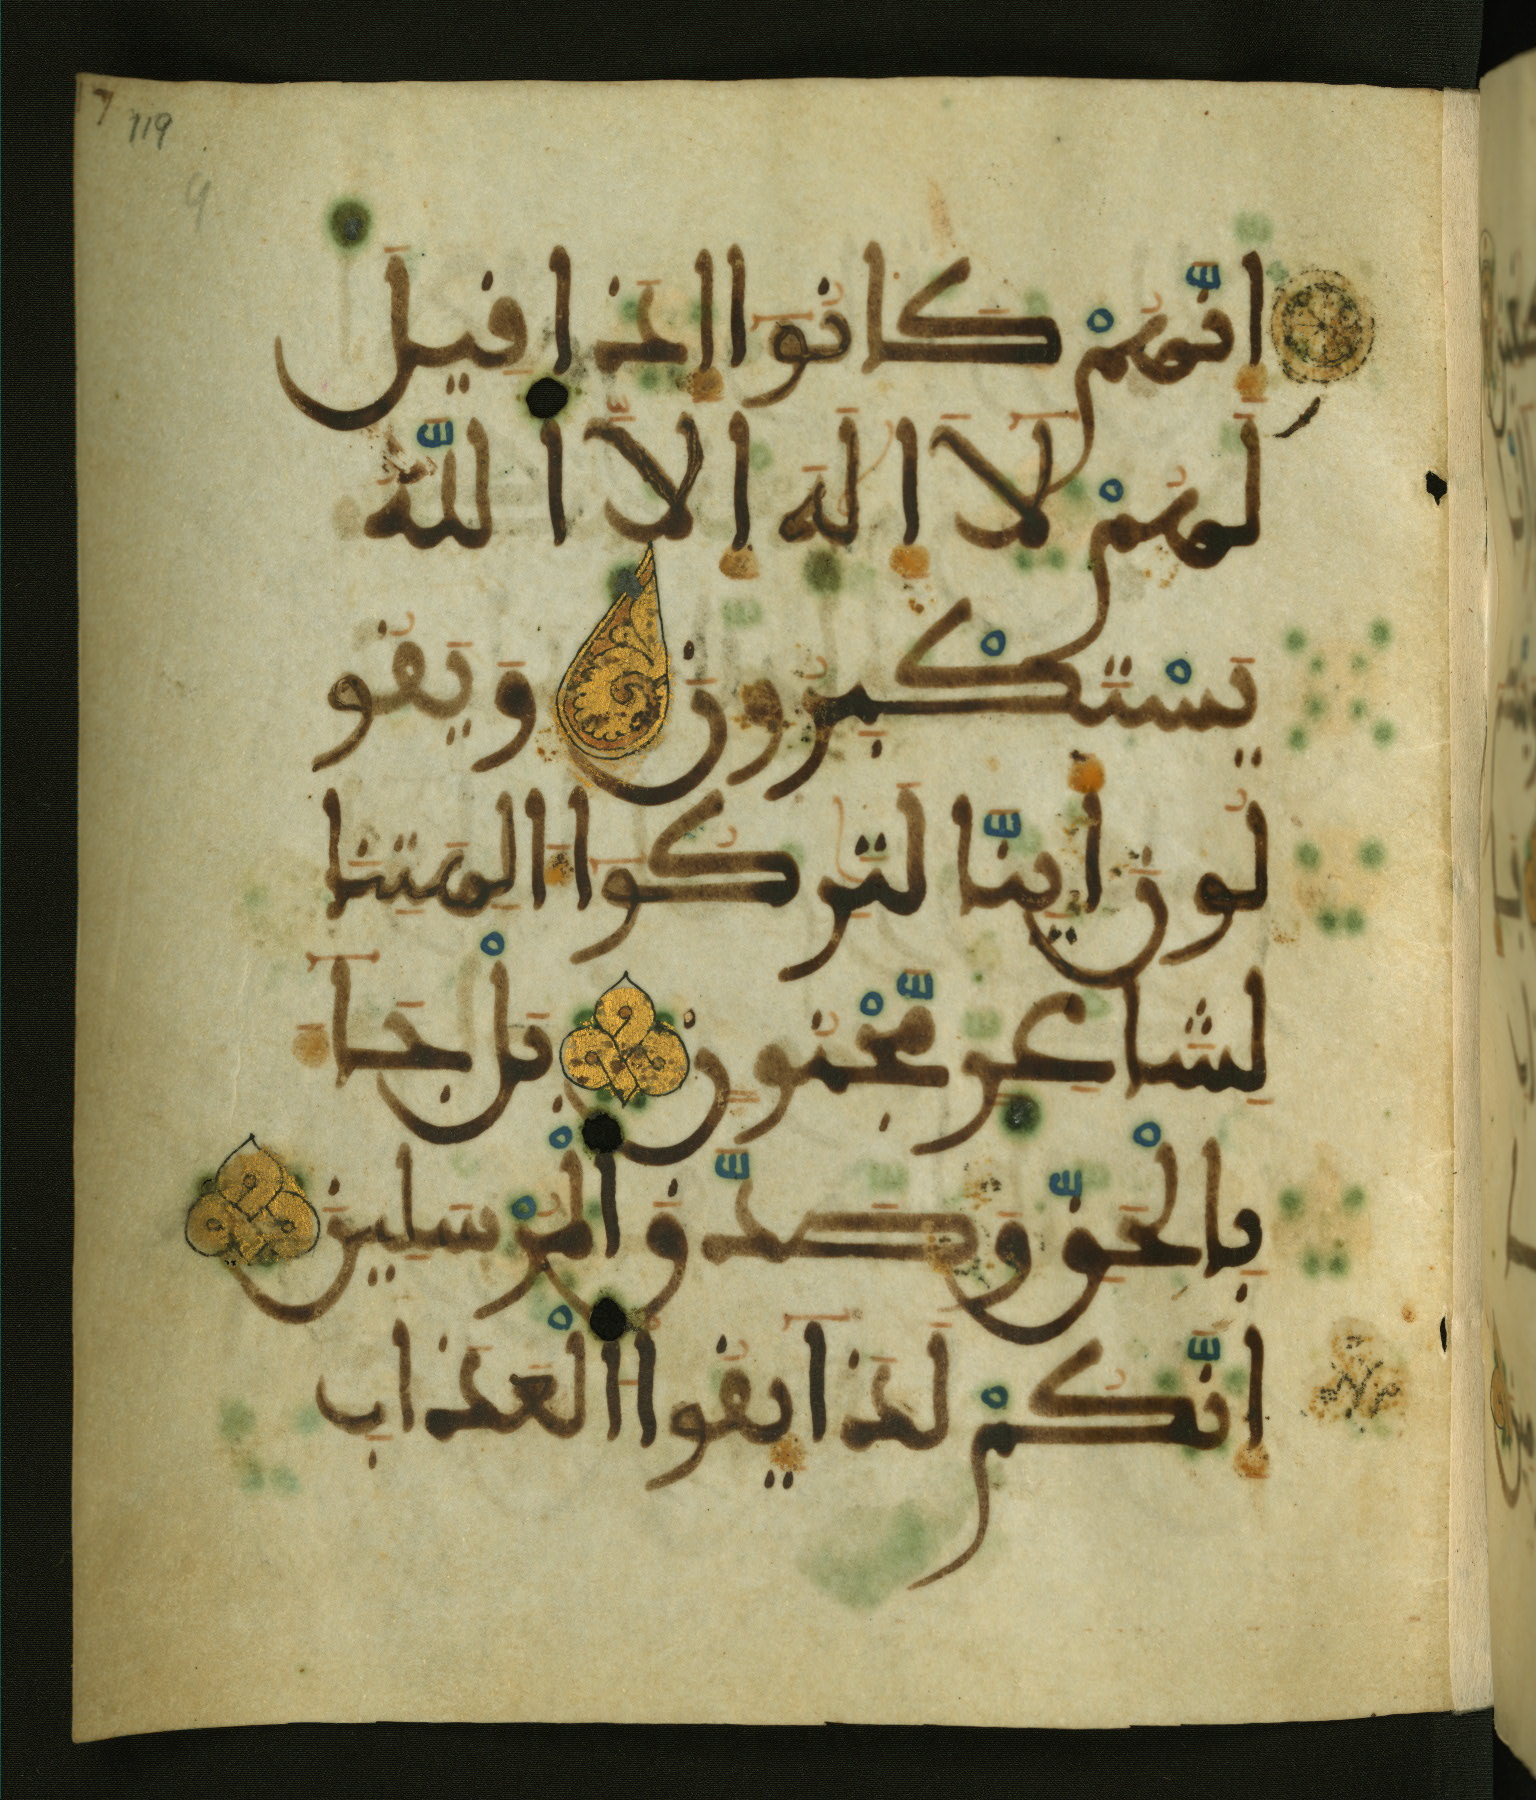 7 119
9
إِنَّهُمْ كَانُوا إِذَا قِيلَ
لَهُمْ لَا إِلَهَ إِلَّا اللَّهُ
يَسْتَكْبِرُونَ وَيَقُو
لُونَ أَيِنَّا لَتَرِكُوا الِهَتِنَا
لِشَاعِرٍ مَّجْنُونٍ بَلْ جَا
بِالْحَقِّ وَصَدَّقَ الْمُرْسَلِينَ
إِنَّكُمْ لَذَايِقُوا الْعَذَابِ